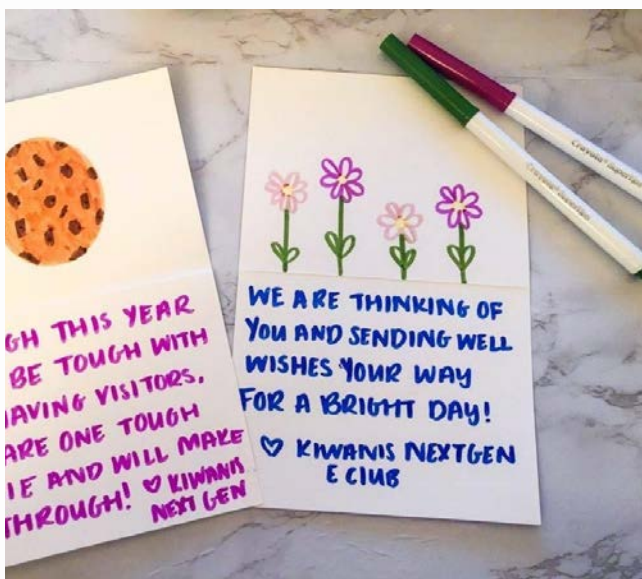 GH THIS YEAR
BE TOUGH WITH
HAVING VISITORS,
ARE ONE TOUGH
IE AND WILL MAKE
THROUGH! ♡ KIWANIS
NEXT GEN
WE ARE THINKING OF
YOU AND SENDING WELL
WISHES YOUR WAY
FOR A BRIGHT DAY!
♡ KIWANIS NEXTGEN
E CLUB
Crayola SuperTips
Crayola SuperTips